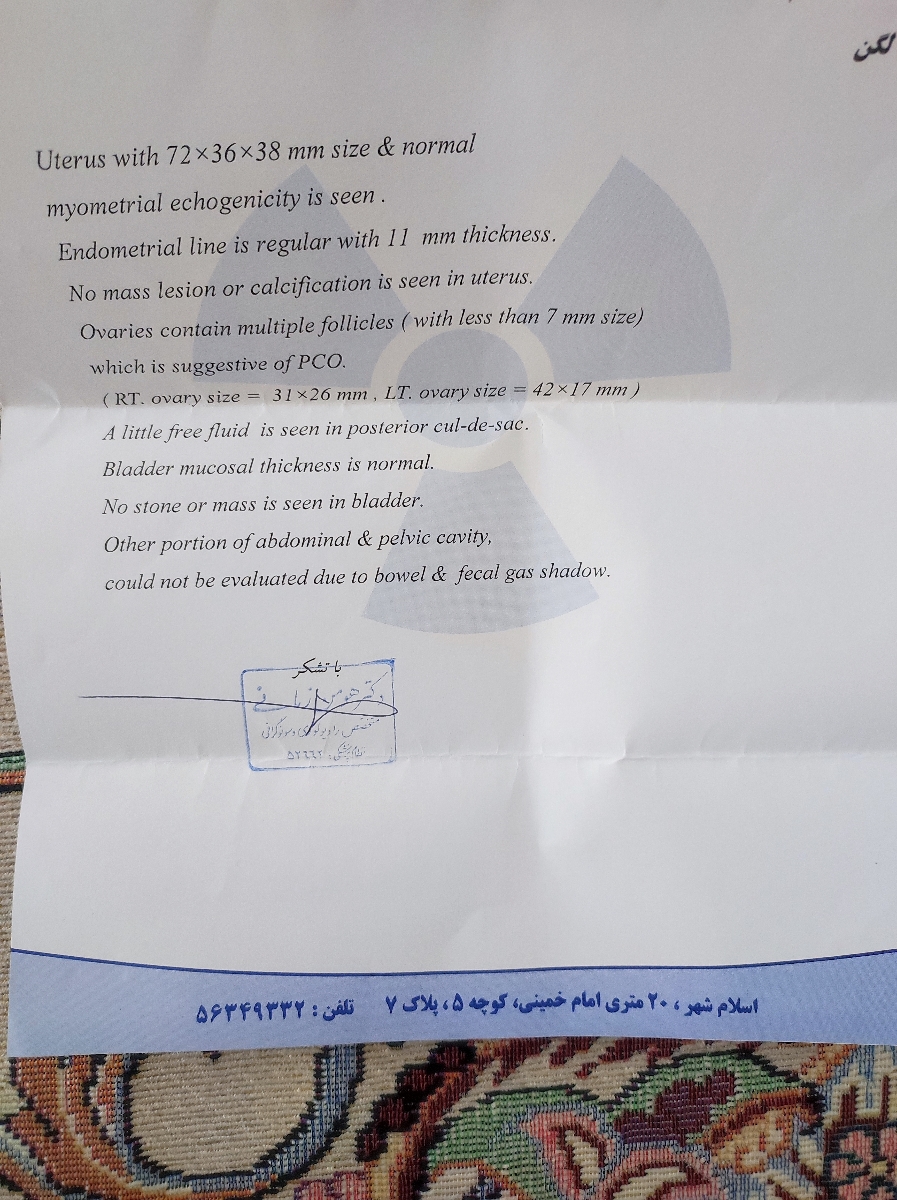 لگن
Uterus with 72×36×38 mm size & normal
myometrial echogenicity is seen .
Endometrial line is regular with 11 mm thickness.
No mass lesion or calcification is seen in uterus.
Ovaries contain multiple follicles ( with less than 7 mm size)
which is suggestive of PCO.
( RT. ovary size = 31×26 mm , LT. ovary size = 42×17 mm )
A little free fluid is seen in posterior cul-de-sac.
Bladder mucosal thickness is normal.
No stone or mass is seen in bladder.
Other portion of abdominal & pelvic cavity,
could not be evaluated due to bowel & fecal gas shadow.
با تشکر
دکتر هومن
متخصص رادیولوژی و سونوگرافی
اسلام شهر ، ۲۰ متری امام خمینی، کوچه ۵، پلاک ۷ تلفن : ۵۶۳۴۹۳۳۲